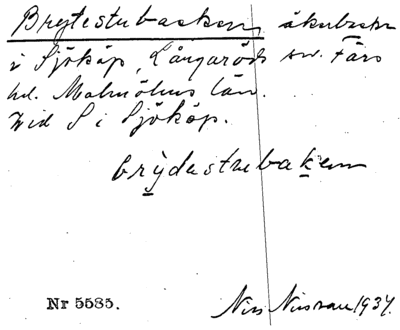 Brytestubacken, åkerbacke
i Sjököp, Långaröds sn. Färs
hd. Malmöhus län.
Vid S i Sjököp.
brydestubaken
Nr 5585.
Nils Nilsson 1937.